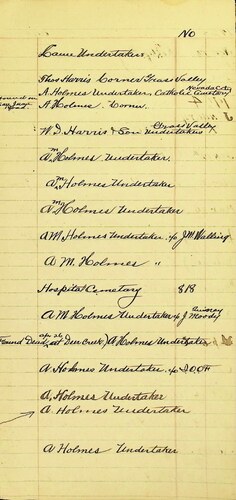 No
Same Undertaker
Thos Harris Corner Grass Valley
A. Holmes Undertaker, Catholic Cemetery Nevada City
A Holmes Corner
W. D. Harris & Son Undertakers Grass Valley
A. M Holmes Undertaker
A. M Holmes Undertaker
A M Holmes Undertaker
A M Holmes Undertaker c/o J M Walling
A M. Holmes "
Hospital Cemetary 818
A M Holmes Undertaker c/o J Moody
Found Dead at Deer Creek) A Holmes Undertaker
A Holmes Undertaker c/o I O O F
A, Holmes Undertaker
A. Holmes Undertaker
A Holmes Undertaker